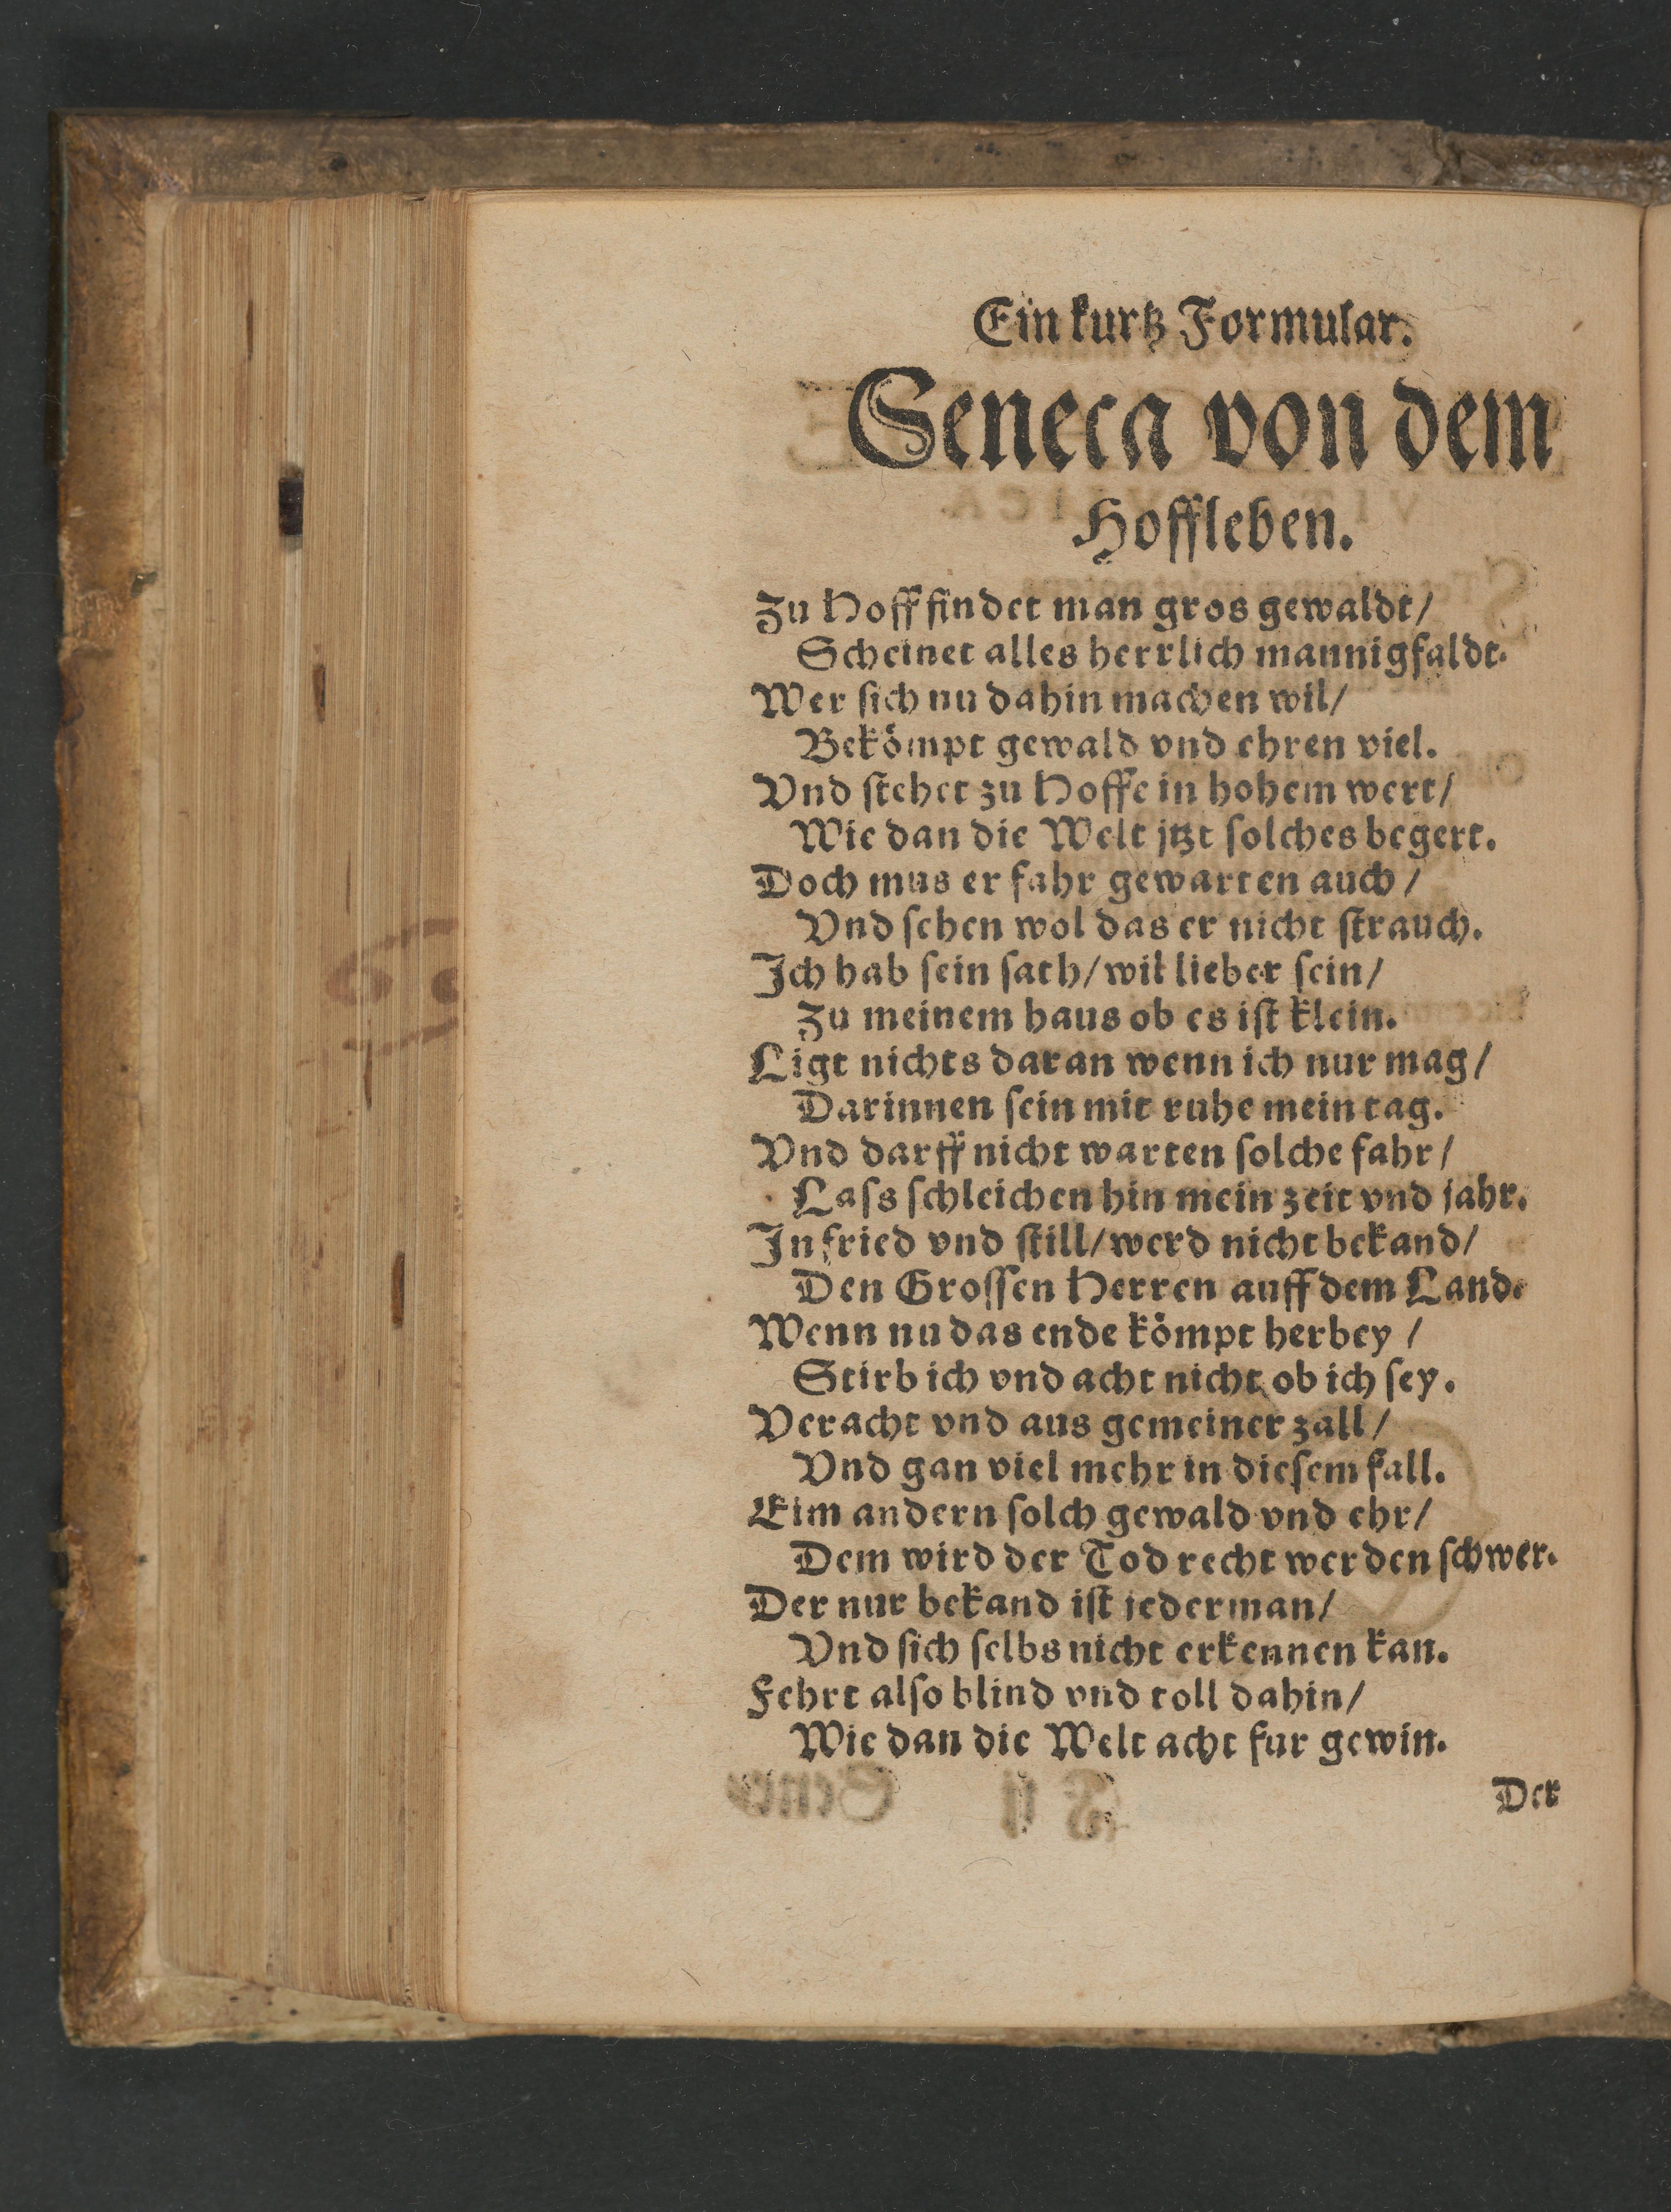 Ein kurtz Formular.
Seneca von dem
Hoffleben.
Zu Hoff findet man gros gewaldt/
Scheinet alles herrlich mannigfaldt.
Wer ſich nu dahin machen wil/
Bekömpt gewald vnd ehren viel.
Vnd ſtehet zu Hoffe in hohem wert/
Wie dan die Welt jtzt ſolches begert.
Doch mus er fahr gewarten auch/
Vnd ſehen wol das er nicht ſtrauch.
Ich hab ſein ſath/wil lieber ſein/
Zu meinem haus ob es iſt klein.
Ligt nichts daran wenn ich nur mag/
Darinnen ſein mit ruhe mein tag.
Vnd darff nicht warten ſolche fahr/
Laſs ſchleichen hin mein zeit vnd jahr.
In fried vnd ſtill/werd nicht bekand/
Den Groſſen Herren auff dem Land.
Wenn nu das ende kömpt herbey/
Stirb ich vnd acht nicht ob ich ſey.
Veracht vnd aus gemeiner zall/
Vnd gan viel mehr in dieſem fall.
Eim andern ſolch gewald vnd ehr/
Dem wird der Tod recht werden ſchwer.
Der nur bekand iſt jederman/
Vnd ſich ſelbs nicht erkennen kan.
Fehrt alſo blind vnd toll dahin/
Wie dan die Welt acht fur gewin.
Der